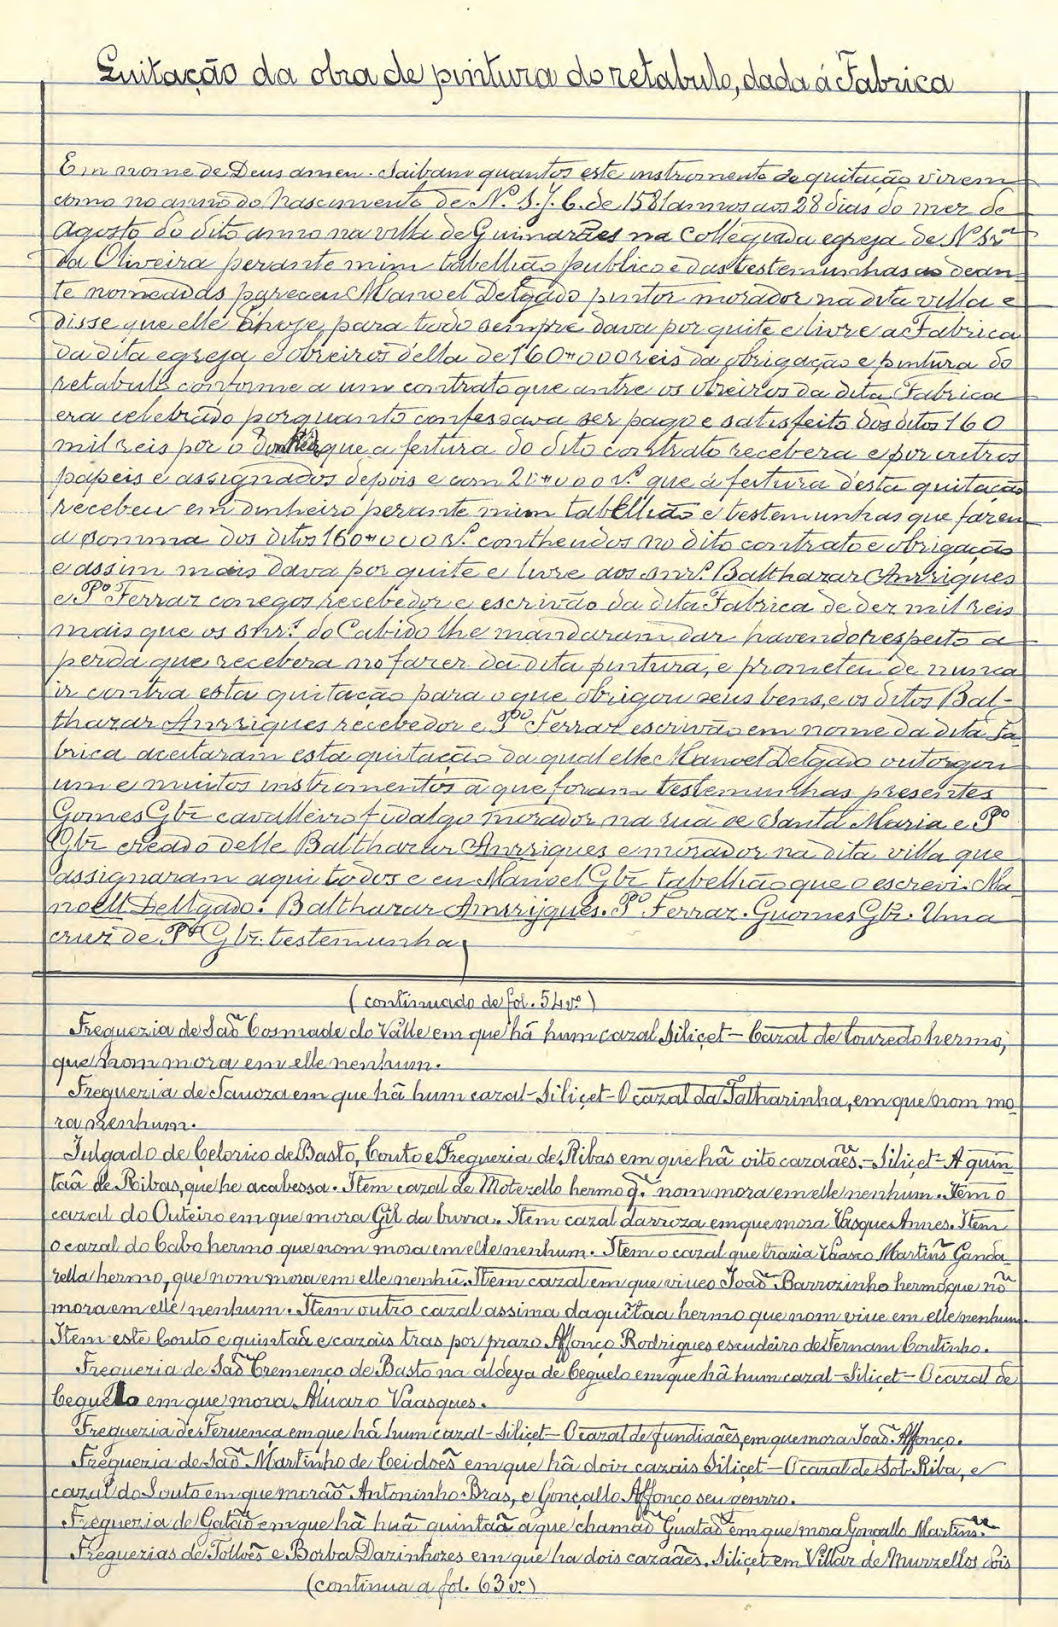 Quitação da obra de pintura do retabulo, dada á Fabrica
Em nome de Deus amen. Saibam quantos este instromento de quitação virem
como no anno do Nascimento de N. S. J. C. de 1581 annos aos 28 dias do mez de
Agosto do dito anno na villa de Guimarães na Collegiada egreja de N. Srª
da Oliveira perante mim tabellião publico e das testemunhas ao dean
te nomeadas pareceu Manoel Delgado pintor morador na dita villa e
disse que elle d'hoje para todo sempre dava por quite e livre a Fabrica
da dita egreja e obreiros d'ella de 160#000 reis da obrigação e pintura do
retabulo conforme a um contrato que antre os obreiros da dita Fabrica
era celebrado porquanto confessava ser pago e satisfeito dos ditos 160
mil reis por o que a feitura do dito contrato recebera e por outros
papeis e assignados depois e com 20#000 rs. que á feitura d'esta quitação
recebeu em dinheiro perante mim tabellião e testemunhas que fazem
a somma dos ditos 160#000 rs. contheudos no dito contrato e obrigação
e assim mais dava por quite e livre aos snrs. Balthazar Anrriques
e Pº Ferraz conegos recebedor e escrivão da dita Fabrica de dez mil reis
mais que os snrs. do Cabido lhe mandaram dar havendo respeito a
perda que recebera no fazer da dita pintura, e prometeu de nunca
ir contra esta quitação para o que obrigou seus bens, e os ditos Bal-
thazar Anrriques recebedor e Pº Ferraz escrivão em nome da dita Fa-
brica aceitaram esta quitação da qual elle Manoel Delgado outorgou
um e muitos instromentos a que foram testemunhas presentes
Gomes Glz cavalleiro fidalgo morador na rua de Santa Maria e Pº
Glz creado delle Balthazar Anrriques e morador na dita villa que
assignaram aqui todos e eu Manoel Glz tabellião que o escrevi. Ma-
noell Dellgado. Balthazar Amrrijques. Pº Ferraz. Guomes Glz. Uma
cruz de Pº Glz. testemunha
(continuado de fol. 54 vº)
Freguezia de Saõ Cosmade do Valle em que há hum cazal Siliçet – Cazal de Couredo hermo,
que nom mora em elle nenhum.
Freguezia de Sauoza em que há hum cazal – Siliçet – O cazal da Talharinha, em que nom mo-
ra nenhum.
Julgado de Çelorico de Basto, Couto e Freguezia de Ribas em que há oito cazaães. – Siliçet – A quin
tãa de Ribas, que he acabessa. Item cazal de Motezello hermo q̃. nom mora em elle nenhum. Item o
cazal do Outeiro em que mora Gil da burra. Item cazal darroza em que mora Vasques Annes. Item
o cazal do Cabo hermo que nom mora em elle nenhum. Item o cazal que trazia Vaasco Martins Ganda-
rella hermo, que nom mora em elle nenhũ. Item cazal em que viueo Joaõ Barrozinho hermo que nõ
mora em elle nenhum. Item outro cazal assima da quĩtaa hermo que nom viue em elle nenhum.
Item este Couto e quintaã e cazais tras por prazo Affonço Rodrigues escudeiro de Fernam Coutinho.
Freguezia de Saõ Cremenço de Basto na aldeya de Ceguelo em que há hum cazal – Siliçet – O cazal de
Ceguello em que mora Alvaro Vaasques.
Freguezia de Feruença em que há hum cazal – Siliçet – O cazal de fundiaães, em que mora Joaõ Affonço.
Freguezia de Saõ Martinho de Ceidoẽs em que há doiz cazais Siliçet – O cazal de Sob Riba, e
cazal do Souto em que moraõ Antoninho Bras, e Gonçallo Affonço seu genrro.
Freguezia de Gataõ em que há huã quintaã a que chamaõ Guataõ em que mora Gonçallo Martins.
Freguezias de Tolloẽs e Borba Darinhozes em que ha dois cazaães. Siliçet em Villar de Murzellos dois
(continua a fol. 63 vº)